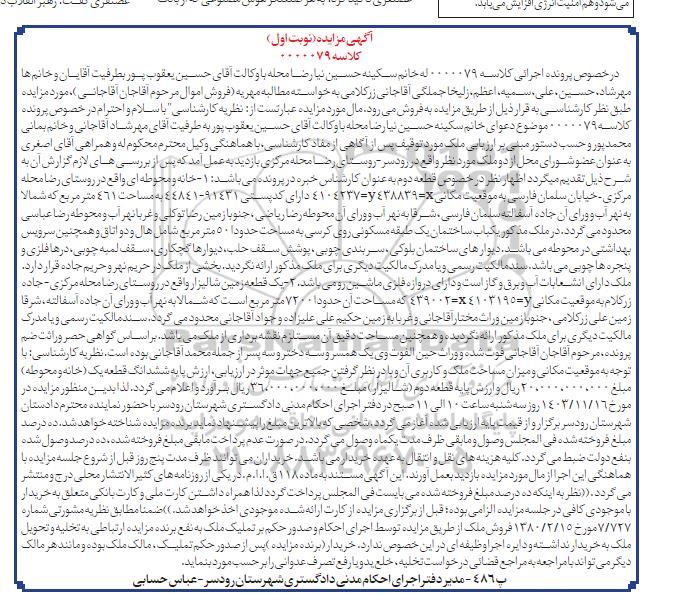 می‌شود و هم امنیت انرژی افزایش می‌یابد.
آگهی مزایده (نوبت اول)
کلاسه ۰۰۰۰۰۷۹
در خصوص پرونده اجرائی کلاسه ۰۰۰۰۰۷۹ له خانم سکینه حسین نیا رضا محله با وکالت آقای حسین یعقوب پور بطرفیت آقایان و خانم ها
مهرشاد، حسین، علی، سمیه، اعظم، زلیخا جملگی آقاجانی زرکلامی به خواسته مطالبه مهریه (فروش اموال مرحوم آقاجان آقاجانی)، مورد مزایده
طبق نظر کارشناسی به قرار ذیل از طریق مزایده به فروش می رود. مال مورد مزایده عبارتست از: نظریه کارشناسی" با سلام و احترام در خصوص پرونده
کلاسه ۰۰۰۰۰۷۹ موضوع دعوای خانم سکینه حسین نیا رضا محله با وکالت آقای حسین یعقوب پور به طرفیت آقای مهرشاد آقاجانی و خانم یمانی
محمدپور و حسب دستور مبنی بر ارزیابی ملک مورد توقیف پس از آگاهی از مفاد کارشناسی، با هماهنگی وکیل محترم محکوم له و همراهی آقای اصغری
به عنوان عضو شورای محل از دو ملک مورد نظر واقع در رودسر -روستای رضا محله مرکزی بازدید به عمل آمد که پس از بررسی های لازم گزارش آن به
شرح ذیل تقدیم میگردد اظهار نظر در خصوص قطعه دوم به عنوان کارشناس خبره در پرونده می باشد: ۱-خانه و محوطه ای واقع در روستای رضا محله
مرکزی-خیابان سلمان فارسی به موقعیت مکانی x=۴۳۸۸۳۹ y=۴۱۰۴۲۳۷ دارای کد پستی ۹۱۴۳۱-۴۴۸۴۱ به مساحت ۴۶۱ متر مربع که شمالا
به نهر آب و ورای آن جاده آسفالته سلمان فارسی، شرقا به نهر آب و ورای آن محوطه رضا ریاضی، جنوبا زمین رضا توکلی و غربا نهر آب و محوطه رضا عباسی
محدود می گردد. در ملک مذکور یکباب ساختمان یک طبقه مسکونی روی کرسی به مساحت حدودا ۵۰ متر مربع شامل هال و دو اتاق و همچنین سرویس
بهداشتی در محوطه می باشد. دیوار های ساختمان بلوکی، سر بندی چوبی، پوشش سقف حلب، دیوارها گچکاری، سقف لمبه چوبی، درها فلزی و
پنجره ها چوبی می باشد. سند مالکیت رسمی و یا مدرک مالکیت دیگری برای ملک مذکور ارائه نگردید. بخشی از ملک در حریم نهر و حریم جاده قرار دارد.
ملک دارای انشعابات آب و برق و گاز است و دارای دروازه فلزی ماشین رو می باشد. ۲-یک قطعه زمین شالیزار واقع در روستای رضا محله مرکزی - جاده
زرکلام به موقعیت مکانی x=۴۳۹۰۰۲ y=۴۱۰۳۱۹۵ که مساحت آن حدودا ۷۲۰۰ متر مربع است که شمالا به نهر آب و ورای آن جاده آسفالته، شرقا
زمین علی زرکلامی، جنوبا زمین وراث مختار آقاجانی و غربا به زمین حکیم علی علیزاده و جواد آقاجانی محدود می گردد. سند مالکیت رسمی و یا مدرک
مالکیت دیگری برای ملک مذکور ارائه نگردیده و همچنین مساحت دقیق آن مستلزم نقشه برداری از ملک می باشد. براساس گواهی حصر وراثت ضم
پرونده، مرحوم آقاجان آقاجانی فوت شده و وراث حین الفوت وی یک همسر و سه دختر و سه پسر از جمله محمد آقاجانی بوده است. نظریه کارشناسی: با
توجه به موقعیت مکانی و میزان مساحت ملک و کاربری آن و با در نظر گرفتن جمیع جهات موثر در ارزیابی، ارزش پایه ششدانگ قطعه یک (خانه و محوطه)
مبلغ ۲۰,۰۰۰,۰۰۰,۰۰۰ ریال و ارزش پایه قطعه دوم (شالیزار) مبلغ ۳۶,۰۰۰,۰۰۰,۰۰۰ ریال برآورد و اعلام می گردد. لذا بدین منظور مزایده در
مورخ ۱۴۰۳/۱۱/۱۶ روز سه شنبه ساعت ۱۰ الی ۱۱ صبح در دفتر اجرای احکام مدنی دادگستری شهرستان رودسر با حضور نماینده محترم دادستان
شهرستان رودسر برگزار و از قیمت پایه ارزیابی شده آغاز می گردد. شخصی که بالاترین مبلغ را پیشنهاد نماید برنده مزایده شناخته خواهد شد. ده درصد
مبلغ فروخته شده فی المجلس وصول و مابقی ظرف مدت یکماه وصول می گردد. در صورت عدم پرداخت مابقی مبلغ فروخته شده، ده درصد وصول شده
بنفع دولت ضبط می گردد. کلیه هزینه های نقل و انتقال به عهده خریدار می باشد. خریداران می توانند ظرف مدت پنج روز قبل از شروع جلسه مزایده با
هماهنگی این اجرا از مال مورد مزایده بازدید بعمل آورند. این آگهی مستند به ماده ۱۱۸ ق.ا.ا.م. در یکی از روزنامه های کثیرالانتشار محلی درج و منتشر
می گردد. ((نظر به اینکه ده درصد مبلغ فروخته شده می بایست فی المجلس پرداخت گردد لذا همراه داشتن کارت ملی و کارت بانکی متعلق به خریدار
با موجودی کافی در جلسه مزایده الزامی بوده؛ قبل از برگزاری مزایده از کارت ارائه شده موجودی اخذ خواهد شد.)) ضمنا مطابق نظریه مشورتی شماره
۷/۷۲۷ مورخ ۱۳۸۰/۲/۱۵ فروش ملک از طریق مزایده توسط اجرای احکام و صدور حکم بر تملیک ملک به نفع برنده مزایده ارتباطی به تخلیه و تحویل
ملک به خریدار نداشته و دایره اجرا وظیفه ای در این خصوص ندارد. خریدار (برنده مزایده) پس از صدور حکم تملیک، مالک ملک بوده و مانند هر مالک
دیگر می تواند با مراجعه به مراجع قضائی درخواست تخلیه، خلع ید و یا رفع تصرف عدوانی را بر حسب مورد بنماید.
پ ۴۸۶ - مدیر دفتر اجرای احکام مدنی دادگستری شهرستان رودسر - عباس حسابی